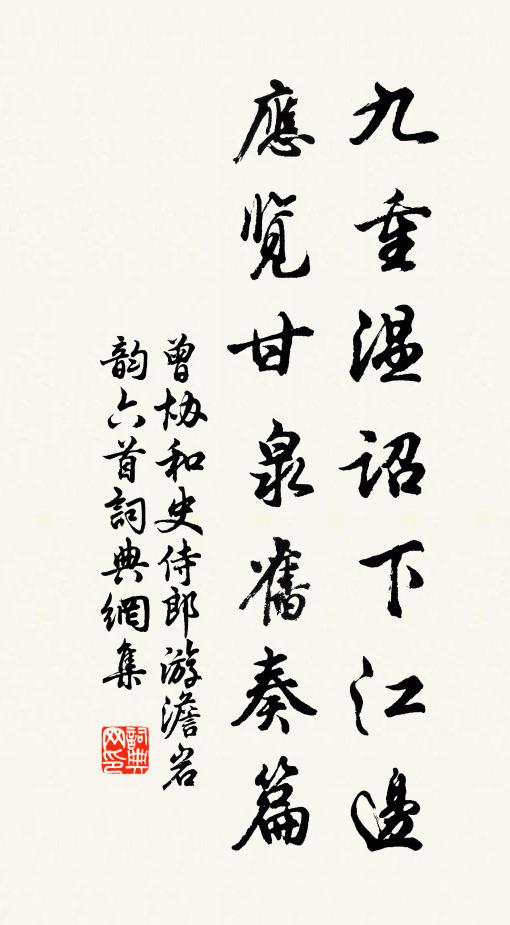 九重温詔下江邊
應览甘泉舊奏篇
曾协和史侍郎游澹岩
韵六首詞典網集
詞典网印